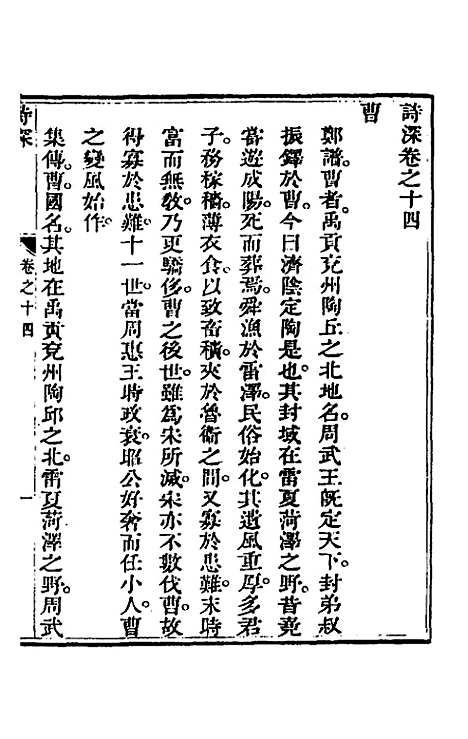 詩深卷之十四
曹
鄭譜。曹者。禹貢兗州陶丘之北地名。周武王旣定天下。封弟叔
振鐸於曹。今日濟陰定陶是也。其封域在雷夏菏澤之野。昔堯
甞遊成陽。死而葬焉。舜漁於雷澤。民俗始化。其遺風重厚。多君
子。務稼穡。薄衣食。以致畜積。夾於魯衛之間。又寡於患難。末時
富而無敎。乃更驕侈。曹之後世。雖爲宋所滅。宋亦不數伐曹。故
得寡於患難。十一世。當周惠王時政衰。昭公好奢而任小人。曹
之變風始作。
集傳。曹國名。其地在禹貢兗州陶邱之北。雷夏菏澤之野。周武
詩深
卷之十四
一